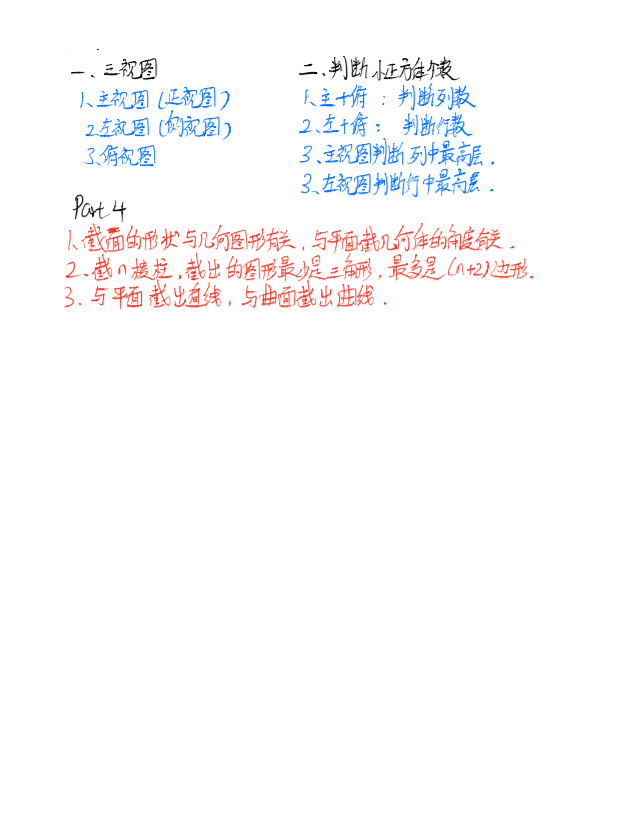 一、三视图
1、主视图(正视图)
2、左视图(侧视图)
3、俯视图
二、判断小正方体个数
1、主+俯：判断列数
2、左+俯：判断行数
3、主视图判断列中最高层.
3、左视图判断行中最高层.
Part 4
1、截面的形状与几何图形有关，与平面截几何体的角度有关.
2、截n棱柱，截出的图形最少是三角形，最多是(n+2)边形.
3、与平面截出直线，与曲面截出曲线.